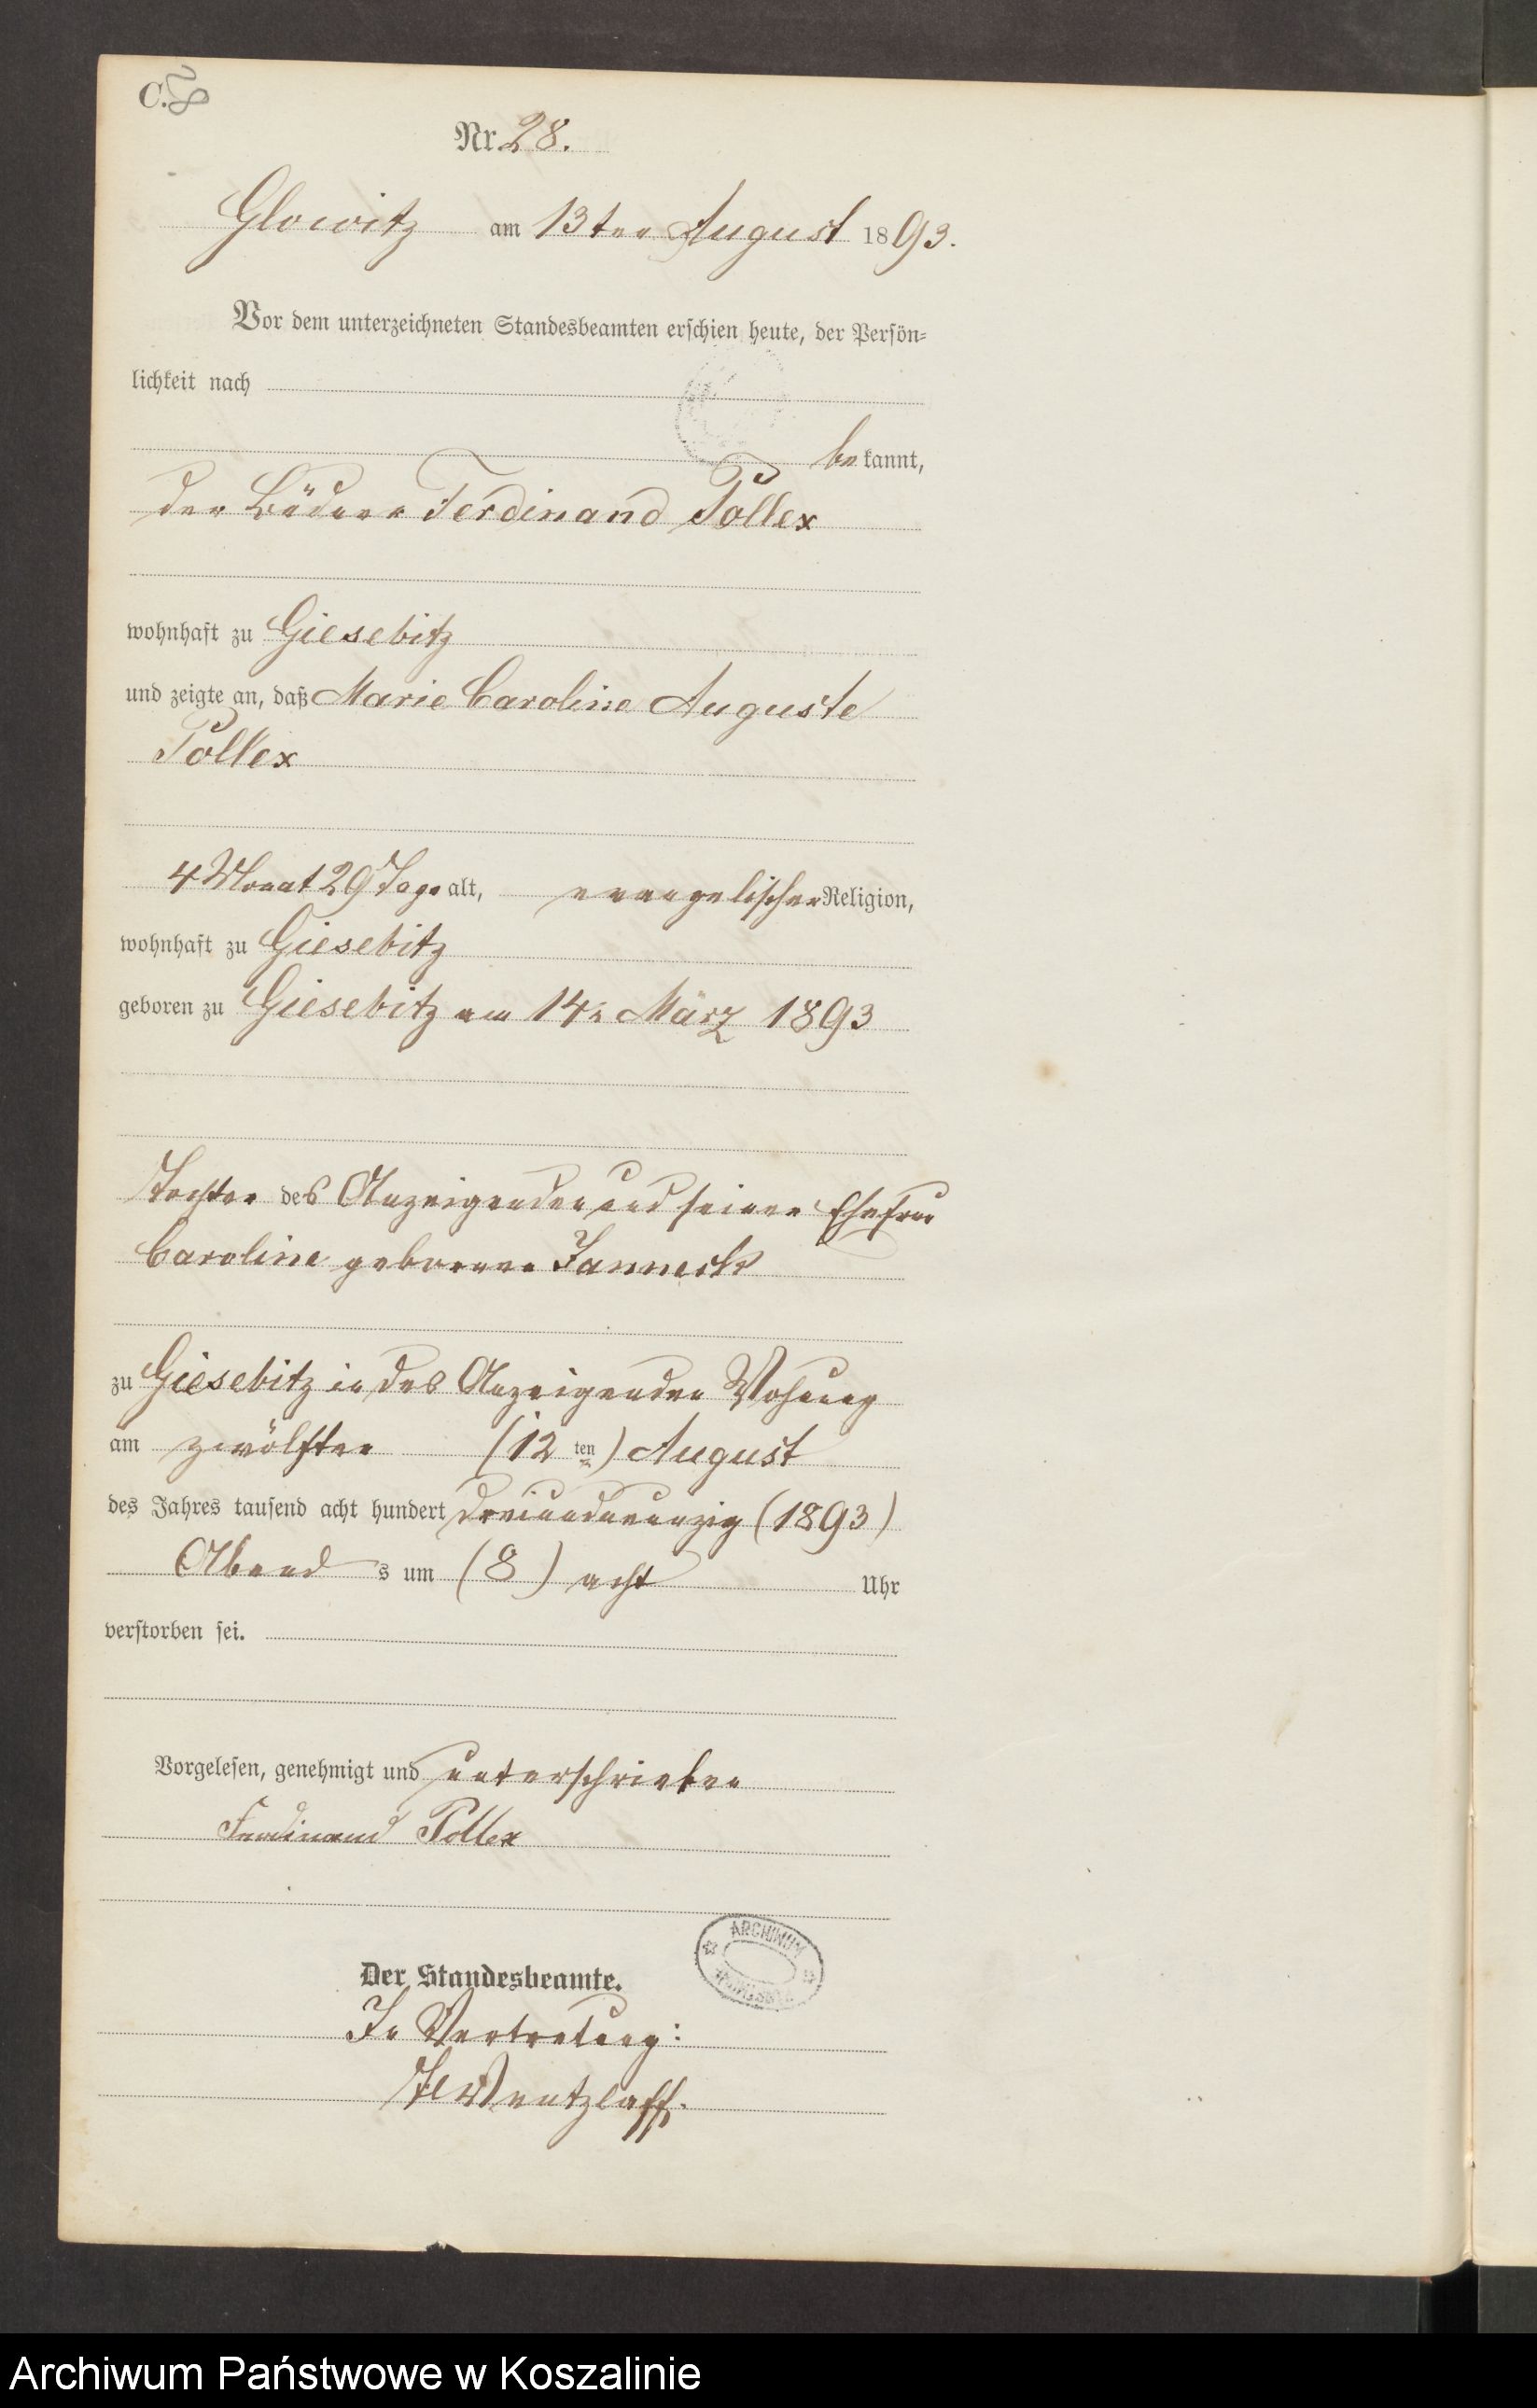 C.
Nr. 28.
Glowitz am 13ten August 1893.
Vor dem unterzeichneten Standesbeamten erschien heute, der Persön=
lichkeit nach
bekannt,
der Büdner Ferdinand Pollex
wohnhaft zu Giesebitz
und zeigte an, daß Marie Caroline Auguste
Pollex
4 Monat 29 Tage alt, evangelischer Religion,
wohnhaft zu Giesebitz
geboren zu Giesebitz am 14n März 1893
Tochter des Anzeigenden und seiner Ehefrau
Caroline geborene Janneck
zu Giesebitz in des Anzeigenden Wohnung
am zwölften (12 ten) August
des Jahres tausend acht hundert dreiundneunzig (1893)
Abends um (8) acht Uhr
verstorben sei.
Vorgelesen, genehmigt und unterschrieben
Ferdinand Pollex
ARCHIWUM
Der Standesbeamte.
In Vertretung:
Wentzlaff.
Archiwum Państwowe w Koszalinie